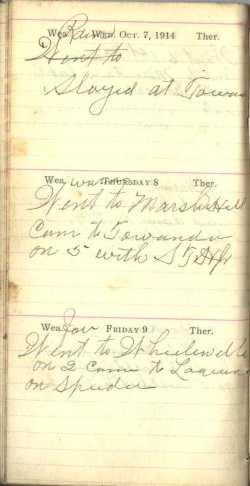 Wea. Rain Wed. Oct. 7, 1914 Ther.
Went to
Stayed at Towanda
Wea. warm Thursday 8 Ther.
Went to Marsh Hill
Cam to Towanda
on 5 with
Wea. Friday 9 Ther.
Went to
on 2 Came to
on Speeder